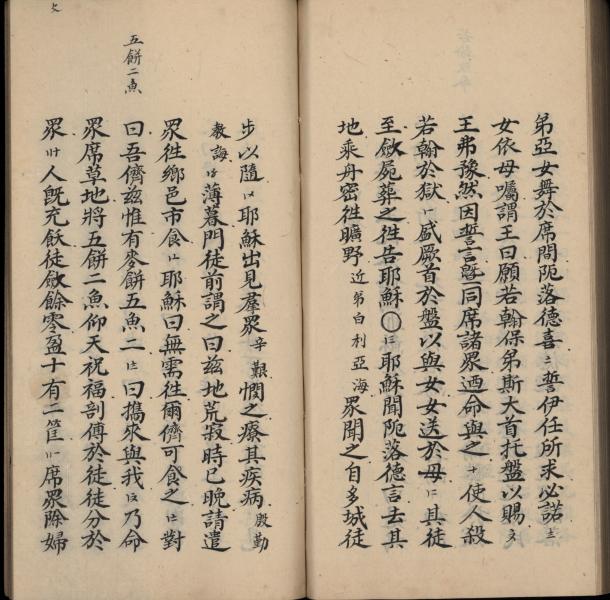 弟亞女舞於席間阨落德喜誓伊任所求必諾
女依母囑謂王曰願若翰保弟斯大首托盤以賜
王弗豫然因誓言暨同席諸眾迺命與之十使人殺
若翰於獄盛厥首於盤以與女女送於母其徒
至斂屍葬之徃告耶穌〇耶穌聞阨落德言去其
地乘舟密徃曠野近弟白利亞海眾聞之自多城徒
步以隨耶穌出見羣眾辛艱憫之療其疾病殷勤
教誨薄暮門徒前謂之曰茲地荒寂時已晚請遣
眾徃鄉邑市食耶穌曰無需徃爾儕可食之對
五餅二魚
曰吾儕茲惟有麥餅五魚二曰擕來與我乃命
眾席草地將五餅二魚仰天祝福剖傅於徒徒分於
眾人旣充飫徒斂餘零盈十有二筐席眾除婦